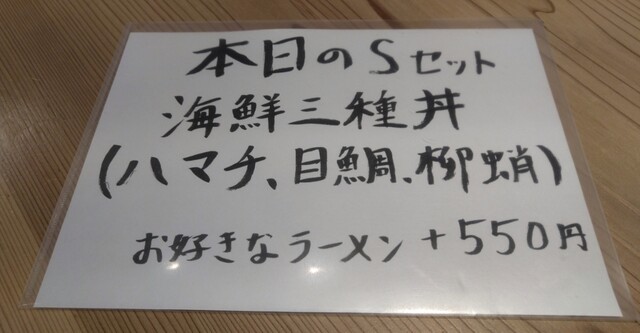 本日のSセット
海鮮三種丼
(ハマチ、目鯛、柳蛸)
お好きなラーメン+550円